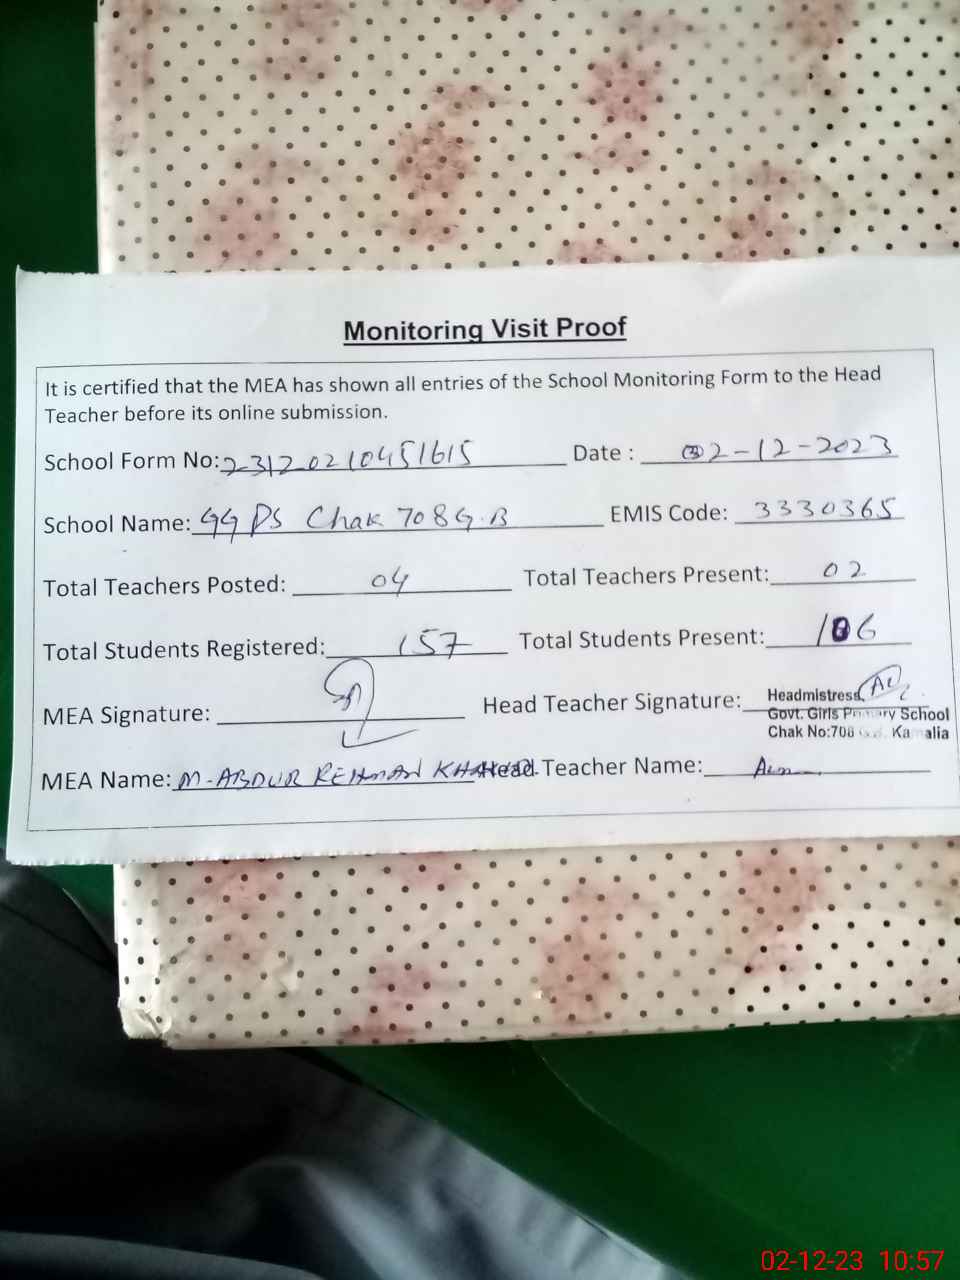 Monitoring Visit Proof
It is certified that the MEA has shown all entries of the School Monitoring Form to the Head
Teacher before its online submission.
School Form No: 2312021045 1615 Date : 02-12-2023
School Name: GGPS Chak 708 G.B EMIS Code: 3330365
Total Teachers Posted: 04 Total Teachers Present: 02
Total Students Registered: 157 Total Students Present: 106
MEA Signature: Head Teacher Signature: Headmistress
Govt. Girls Primary School
Chak No:708 G.B. Kamalia
MEA Name: M-ABDUR REHMAN Head Teacher Name:
02-12-23 10:57